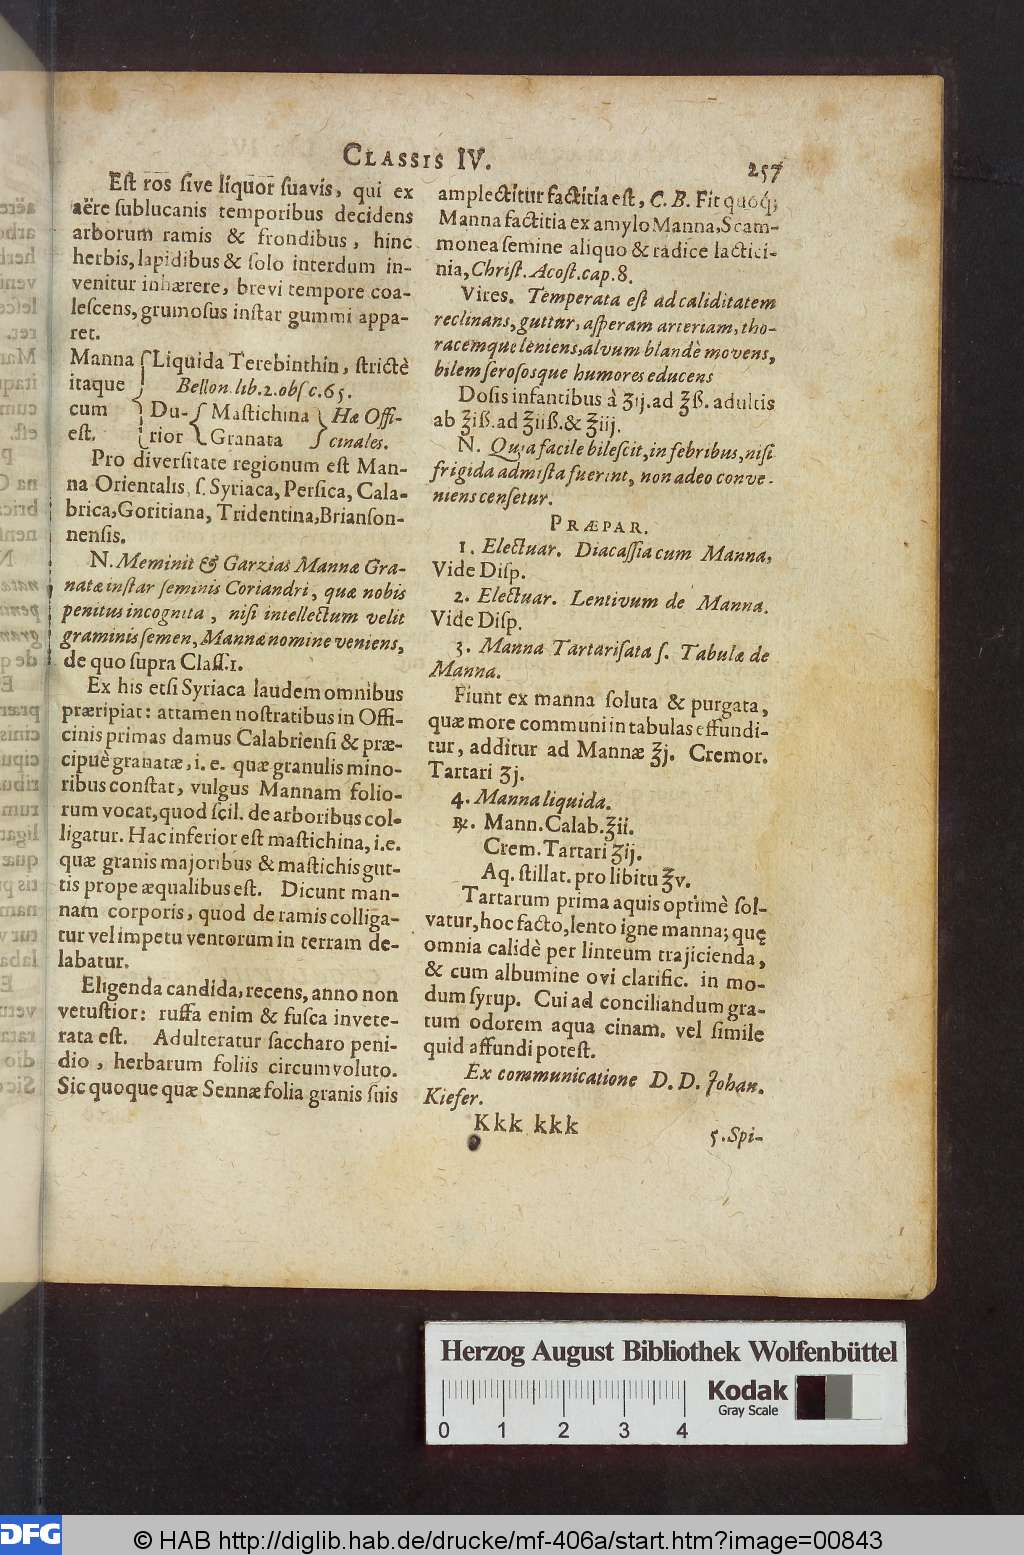 CLASSIS IV.
257
Est ros sive liquor suavis, qui ex
aëre sublucanis temporibus decidens
arborum ramis & frondibus, hinc
herbis, lapidibus & solo interdum in-
venitur inhærere, brevi tempore coa-
lescens, grumosus instar gummi appa-
ret.
Manna { Liquida Terebinthin, strictè
itaque Bellon. lib. 2. obs c. 65.
cum } Du- { Mastichina } Hæ Offi-
est. rior { Granata } cinales.
Pro diversitate regionum est Man-
na Orientalis, ſ. Syriaca, Persica, Cala-
brica, Goritiana, Tridentina, Brianson-
nensis.
N. Meminit & Garzias Mannæ Gra-
natæ instar seminis Coriandri, quæ nobis
penitus incognita, nisi intellectum velit
graminis semen, Mannæ nomine veniens,
de quo supra Class. 1.
Ex his etsi Syriaca laudem omnibus
præripiat: attamen nostratibus in Offi-
cinis primas damus Calabriensi & præ-
cipuè granatæ, i. e. quæ granulis mino-
ribus constat, vulgus Mannam folio-
rum vocat, quod scil. de arboribus col-
ligatur. Hac inferior est mastichina, i. e.
quæ granis majoribus & mastichis gut-
tis prope æqualibus est. Dicunt man-
nam corporis, quod de ramis colliga-
tur vel impetu ventorum in terram de-
labatur.
Eligenda candida, recens, anno non
vetustior: ruffa enim & fusca invete-
rata est. Adulteratur saccharo peni-
dio, herbarum foliis circumvoluto.
Sic quoque quæ Sennæ folia granis suis
amplectitur factitia est, C. B. Fit quoq;
Manna factitia ex amylo Manna, Scam-
monea semine aliquo & radice lactici-
nia, Christ. Acost. cap. 8.
Vires. Temperata est ad caliditatem
reclinans, guttur, asperam arteriam, tho-
racemque leniens, alvum blandè movens,
bilem serososque humores educens
Dosis infantibus à ʒij. ad ℥ß. adultis
ab ℥iß. ad ℥iiß. & ℥iij.
N. Quia facile bilescit, in febribus, nisi
frigida admista fuerint, non adeo conve-
niens censetur.
PRÆPAR.
1. Electuar. Diacassia cum Manna,
Vide Disp.
2. Electuar. Lentivum de Manna.
Vide Disp.
3. Manna Tartarisata ſ. Tabulæ de
Manna.
Fiunt ex manna soluta & purgata,
quæ more communi in tabulas effundi-
tur, additur ad Mannæ ℥j. Cremor.
Tartari ʒj.
4. Manna liquida.
℞. Mann. Calab. ℥ii.
Crem. Tartari ʒij.
Aq. stillat. pro libitu ℥v.
Tartarum prima aquis optimè sol-
vatur, hoc facto, lento igne manna; quę
omnia calidè per linteum trajicienda,
& cum albumine ovi clarific. in mo-
dum syrup. Cui ad conciliandum gra-
tum odorem aqua cinam. vel simile
quid affundi potest.
Ex communicatione D. D. Johan.
Kiefer.
Kkk kkk
5. Spi-
Herzog August Bibliothek Wolfenbüttel
Kodak
Gray Scale
0 1 2 3 4
DFG
© HAB http://diglib.hab.de/drucke/mf-406a/start.htm?image=00843